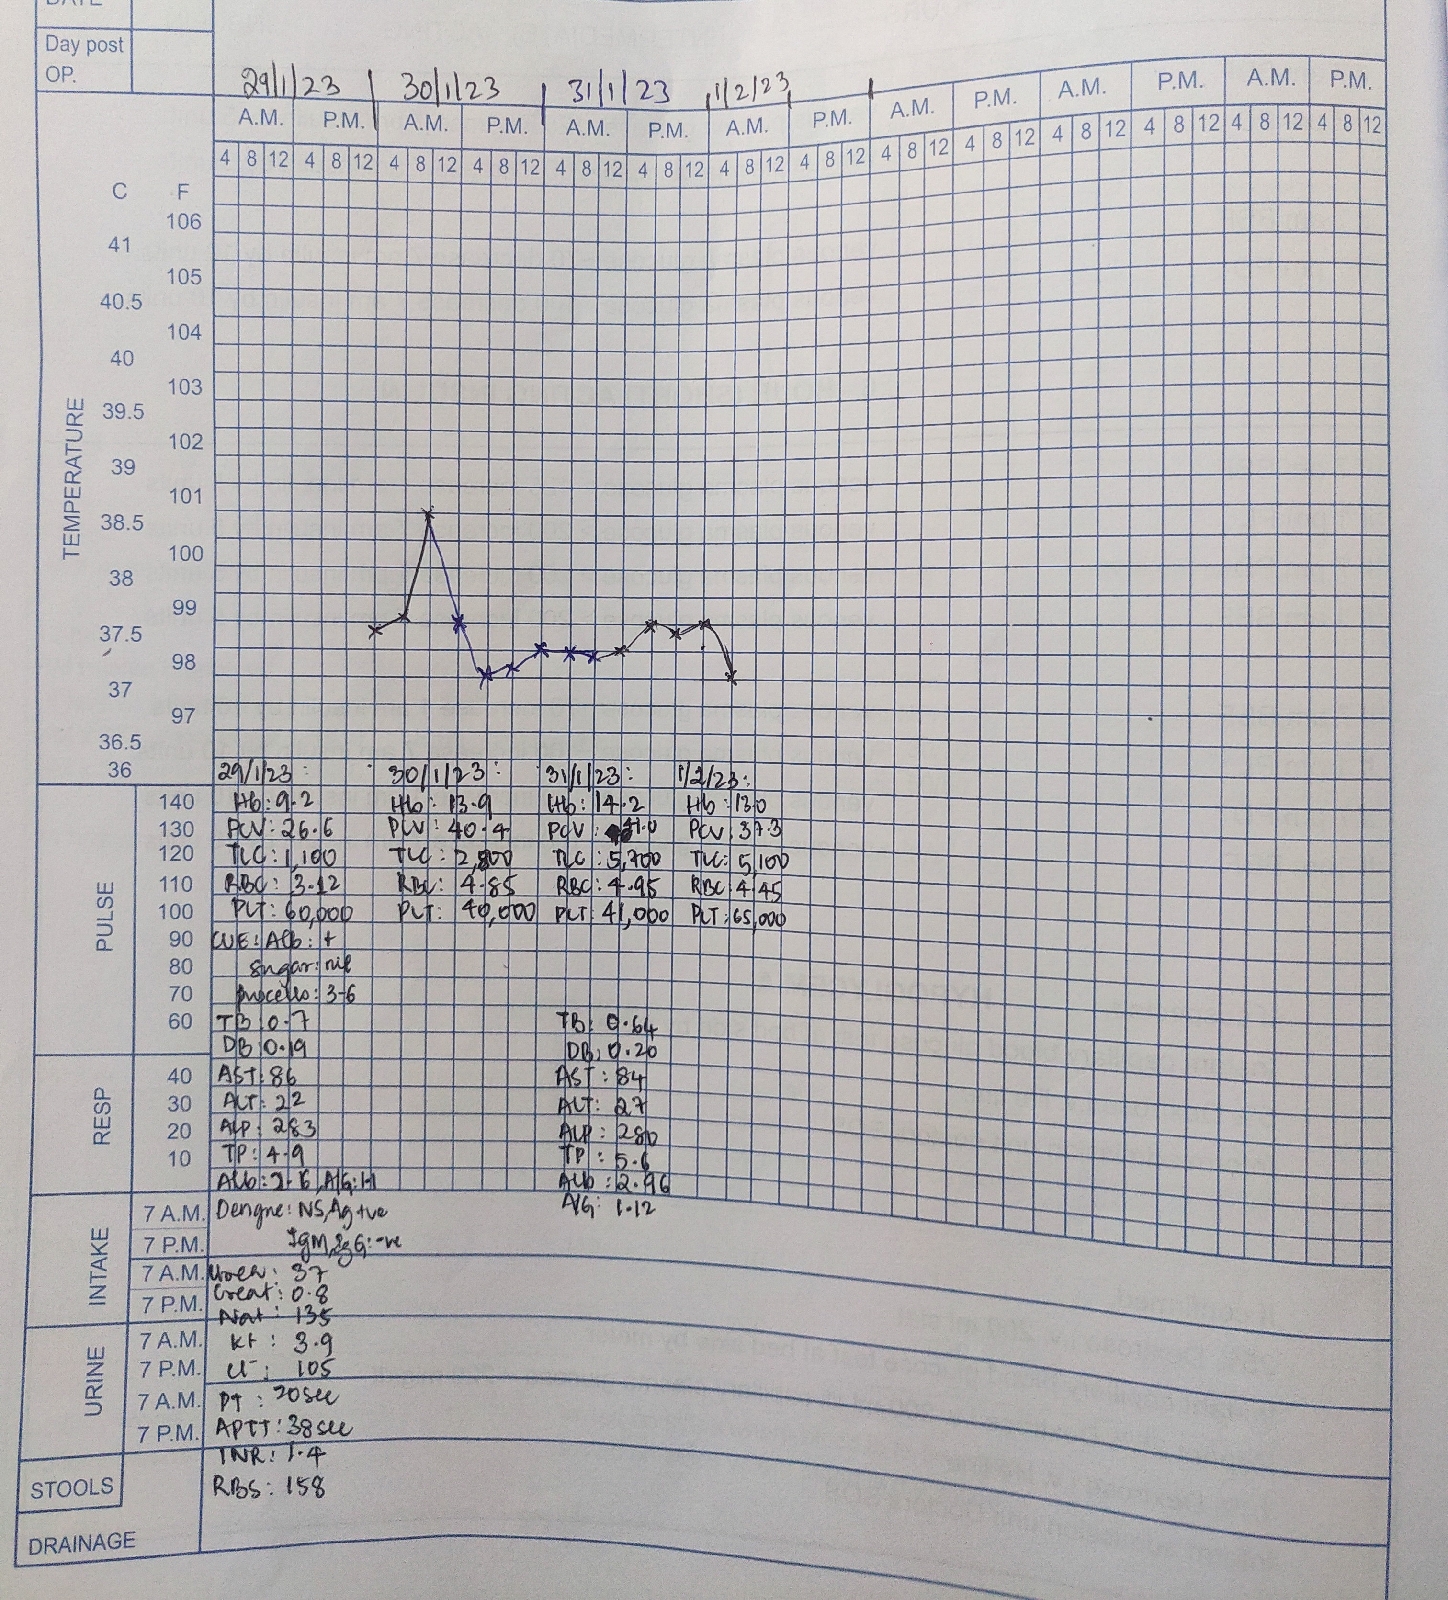 DATE
Day post
OP.
29/1/23 30/1/23 31/1/23 1/2/23
A.M. P.M. A.M. P.M. A.M. P.M. A.M. P.M. A.M. P.M. A.M. P.M. A.M. P.M.
4 8 12 4 8 12 4 8 12 4 8 12 4 8 12 4 8 12 4 8 12 4 8 12 4 8 12 4 8 12 4 8 12 4 8 12 4 8 12 4 8 12
C F
106
41
105
40.5
104
40
103
39.5
102
39
101
38.5
100
38
99
37.5
98
37
97
36.5
36
TEMPERATURE
29/1/23: 30/1/23: 31/1/23: 1/2/23:
140 Hb: 9.2 Hb: 13.9 Hb: 14.2 Hb: 13.0
130 PCV: 26.6 PCV: 40.4 PCV: 41.0 PCV: 37.3
120 TLC: 1,100 TLC: 2,800 TLC: 5,700 TLC: 5,100
110 RBC: 3.12 RBC: 4.85 RBC: 4.95 RBC: 4.45
100 PLT: 60,000 PLT: 40,000 PLT: 41,000 PLT: 65,000
PULSE
90 CUE: Alb: +
80 Sugar: nil
70 puscells: 3-6
60 TB: 0.7 TB: 0.64
DB: 0.19 DB: 0.20
RESP
40 AST: 86 AST: 84
30 ALT: 22 ALT: 27
20 ALP: 283 ALP: 280
10 TP: 4.9 TP: 5.6
Alb: A/G: 1.1 Alb: 2.96
7 A.M. Dengue: NS1 Ag +ve A/G: 1.12
7 P.M. IgM, IgG: -ve
INTAKE
7 A.M. Urea: 37
7 P.M. Creat: 0.8
Na+: 135
URINE
7 A.M. K+: 3.9
7 P.M. Cl-: 105
7 A.M. PT: 20 sec
7 P.M. APTT: 38 sec
INR: 1.4
STOOLS RBS: 158
DRAINAGE